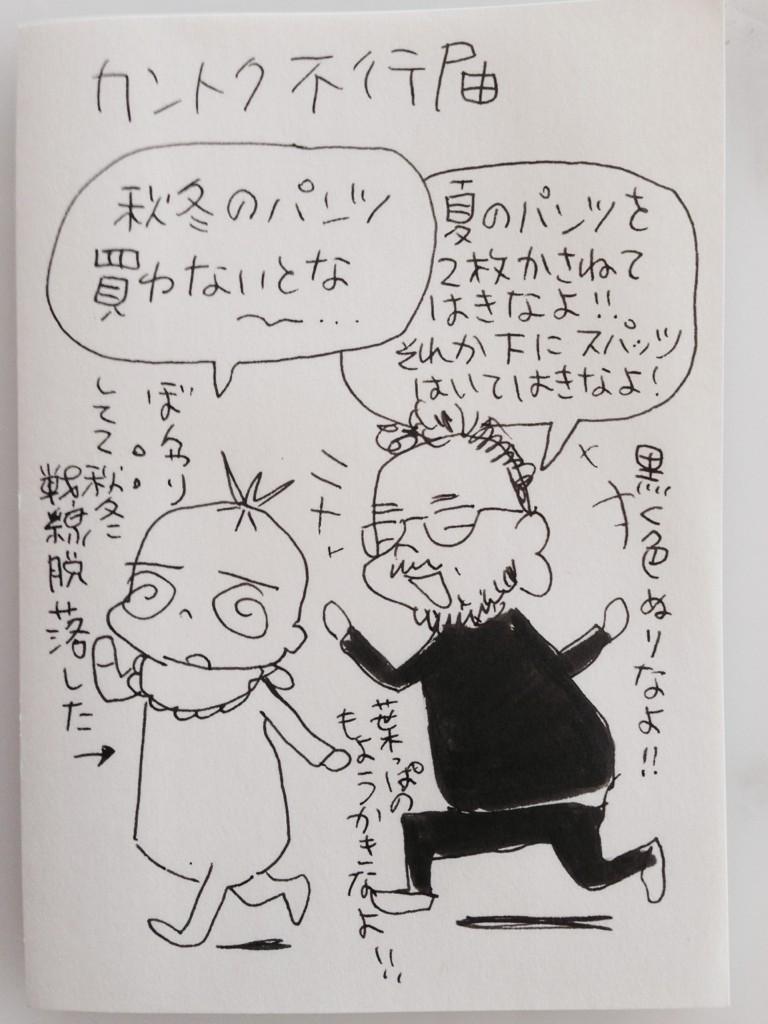 カントク不行届
秋冬のパンツ
買わないとな
〜…
夏のパンツを
2枚かさねて
はきなよ!!
それか下にスパッツ
はいてはきなよ!
ぼんやり
してて秋冬に
戦線脱落した→
黒く色ぬりなよ!!
葉っぱの
もようかきなよ!!